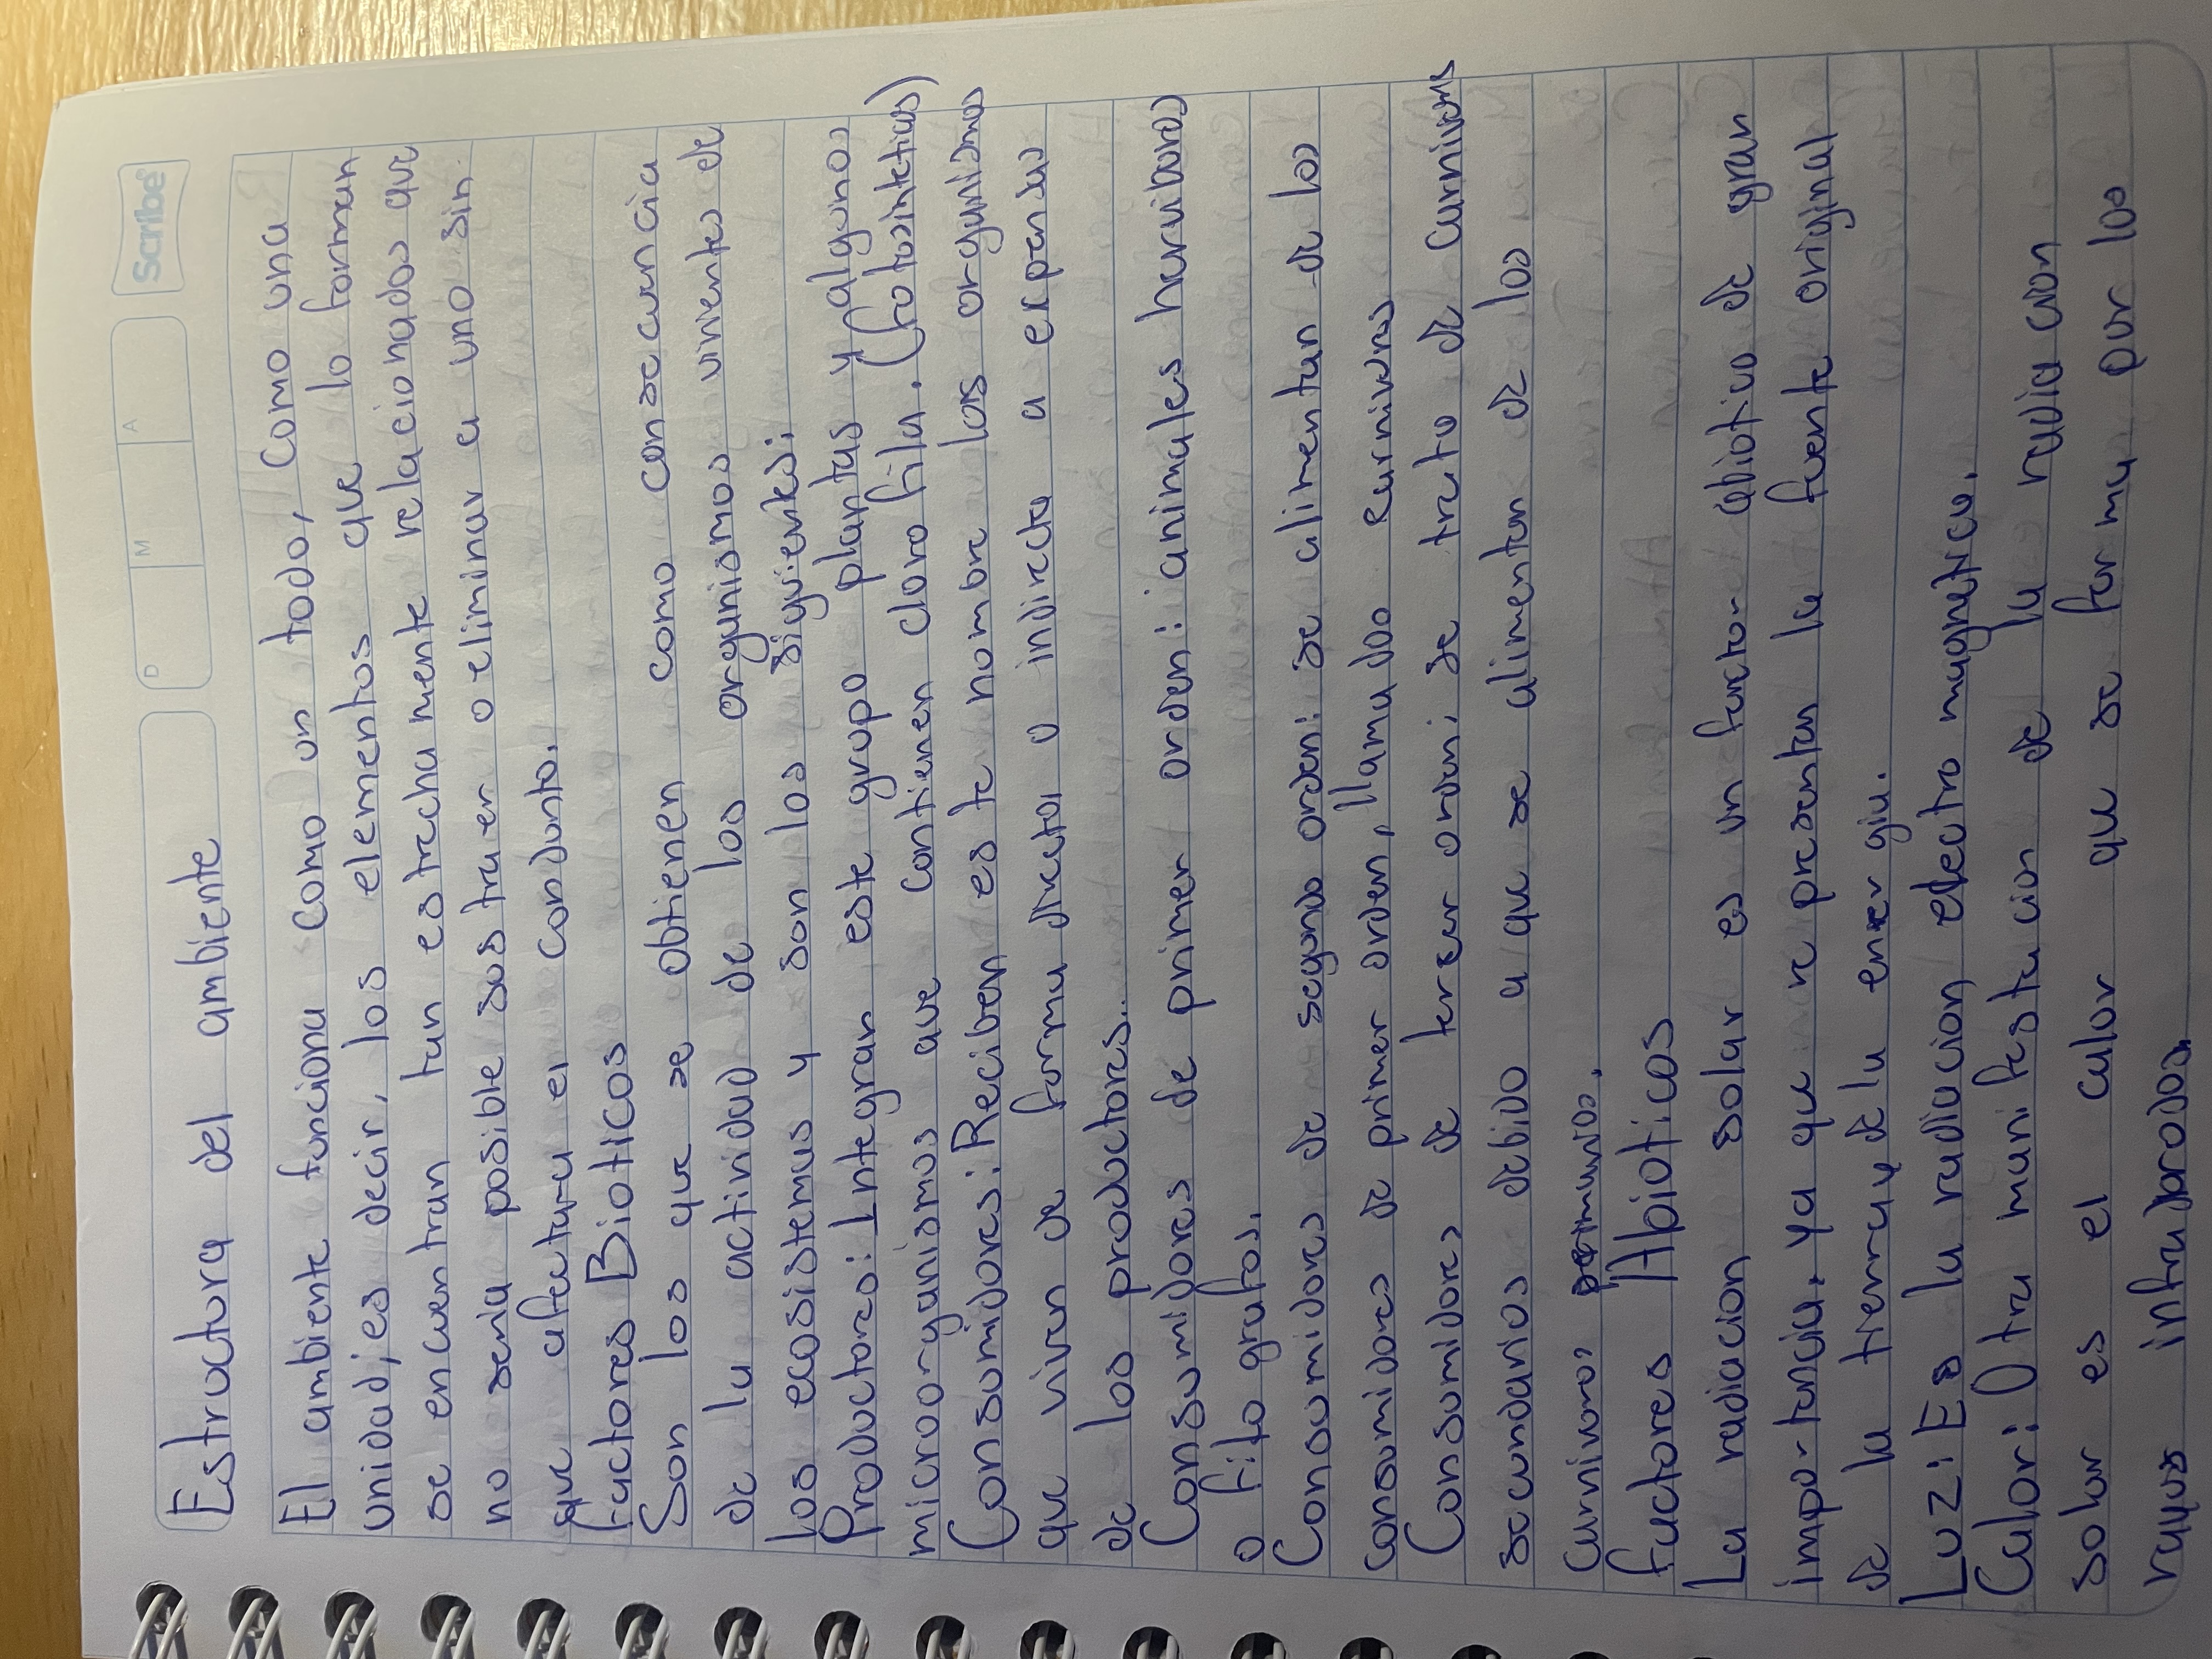 Scribe®
D M A
Estructura del ambiente
El ambiente funciona como un todo, como una
unidad; es decir, los elementos que lo forman
se encuentran tan estrechamente relacionados que
no seria posible sustraer o eliminar a uno sin
que afectara el conjunto.
factores Bioticos
Son los que se obtienen como consecuencia
de la actividad de los organismos vivientes de
los ecosistemas y son los siguientes:
Productores: Integran este grupo plantas y algunos
microorganismos que contienen clorofila. (fotosinteticas)
Consumidores: Reciben este nombre los organismos
que viven de forma directa o indirecta a expensas
de los productores.
Consumidores de primer orden: animales herviboros
o fitografos.
Consumidores de segundo orden: se alimentan de los
consumidores de primer orden, llamados carnivoros
Consumidores de tercer orden: se trata de carnivoros
secundarios debido a que se alimentan de los
carnivoros primarios.
factores Abioticos
La radiacion solar es un factor abiotico de gran
importancia. Ya que representan la fuente original
de la tierra, de la energia.
Luz: Es la radiacion electromagnetica.
Calor: Otra manifestacion de la radiacion
solar es el calor que se forma por los
rayos infrarrodos.